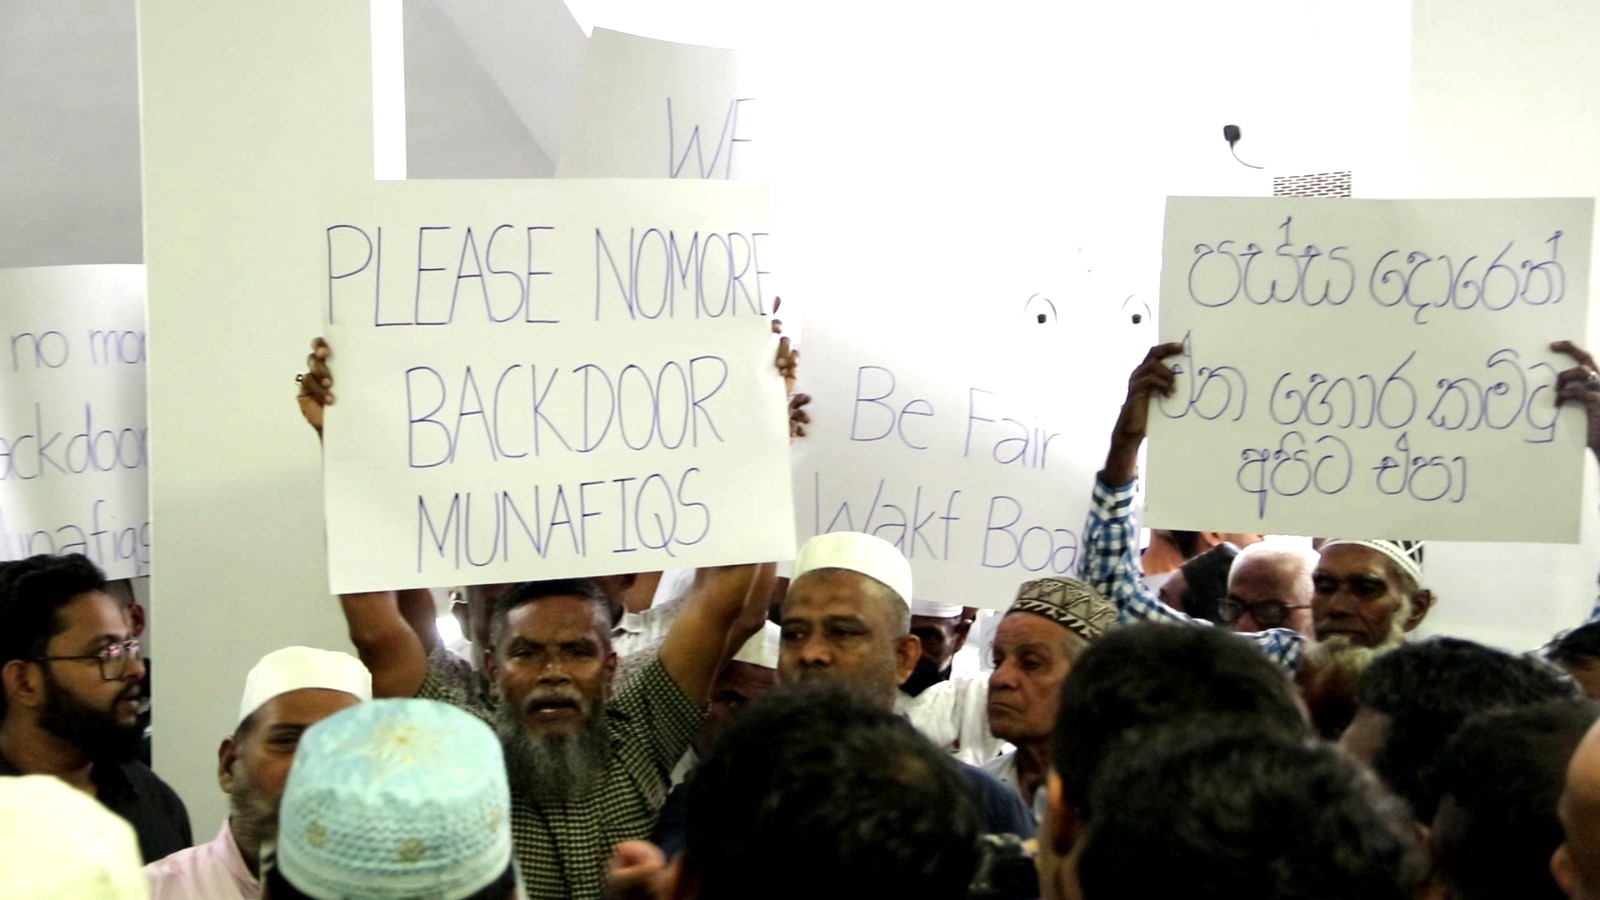 no mo
ackdoor
unafiqs
WE
PLEASE NOMORE
BACKDOOR
MUNAFIQS
Be Fair
Wakf Boa
පස්ස දොරෙන්
එන හොර කමිටු
අපිට එපා